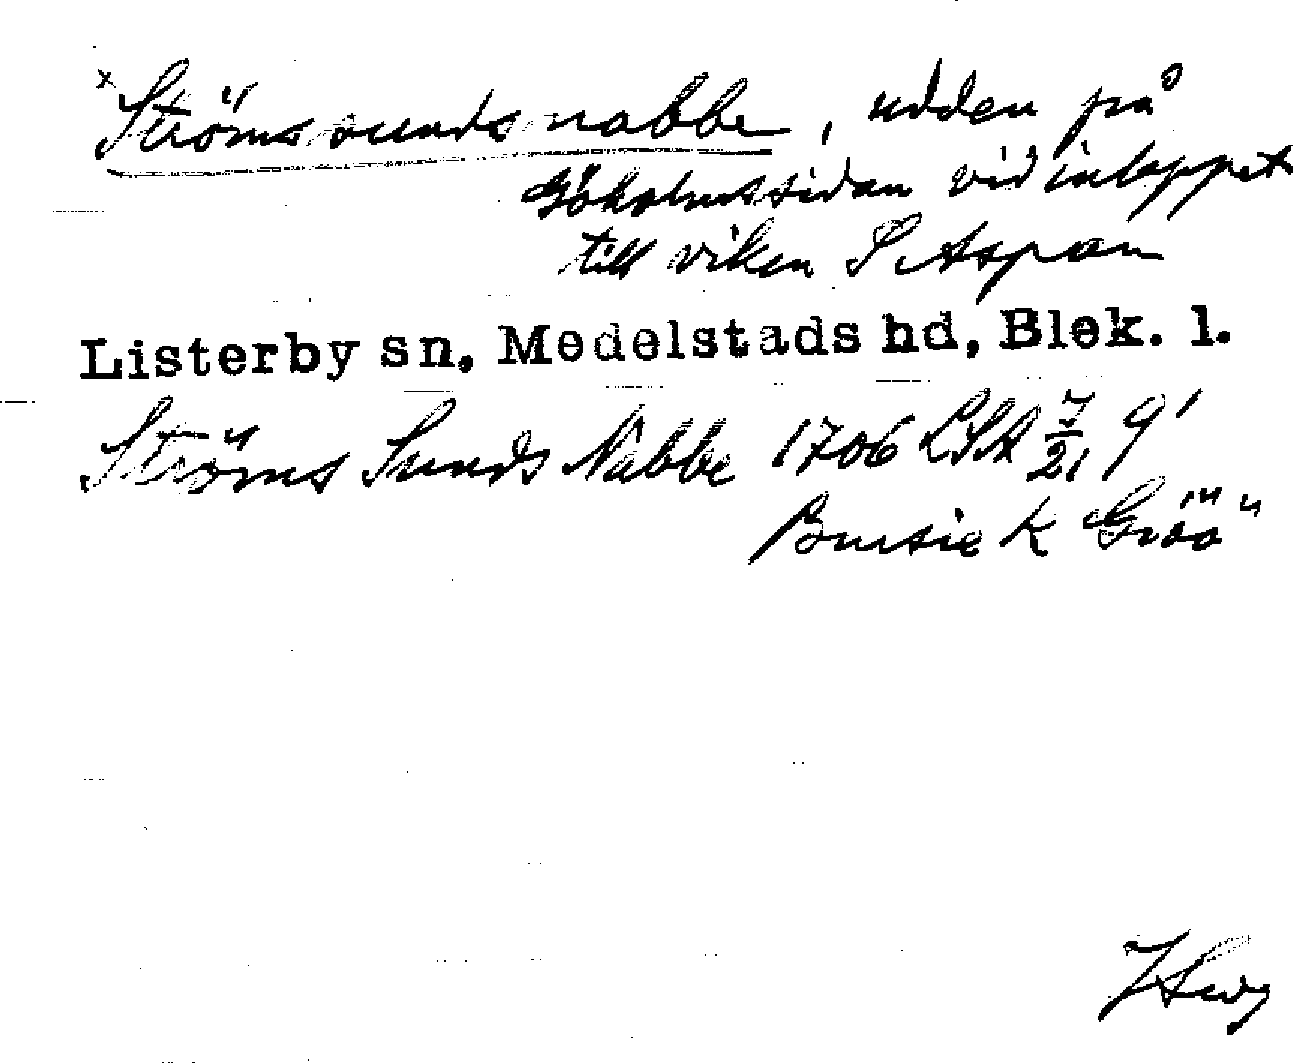 x Strömsundsnabbe, udden på
Gökolmssidan vid inloppet
till viken S Aspan
Listerby sn, Medelstads hd, Blek. l.
Ströms Sunds Nabbe 1706 LSA 7/21 9'
k Gröö